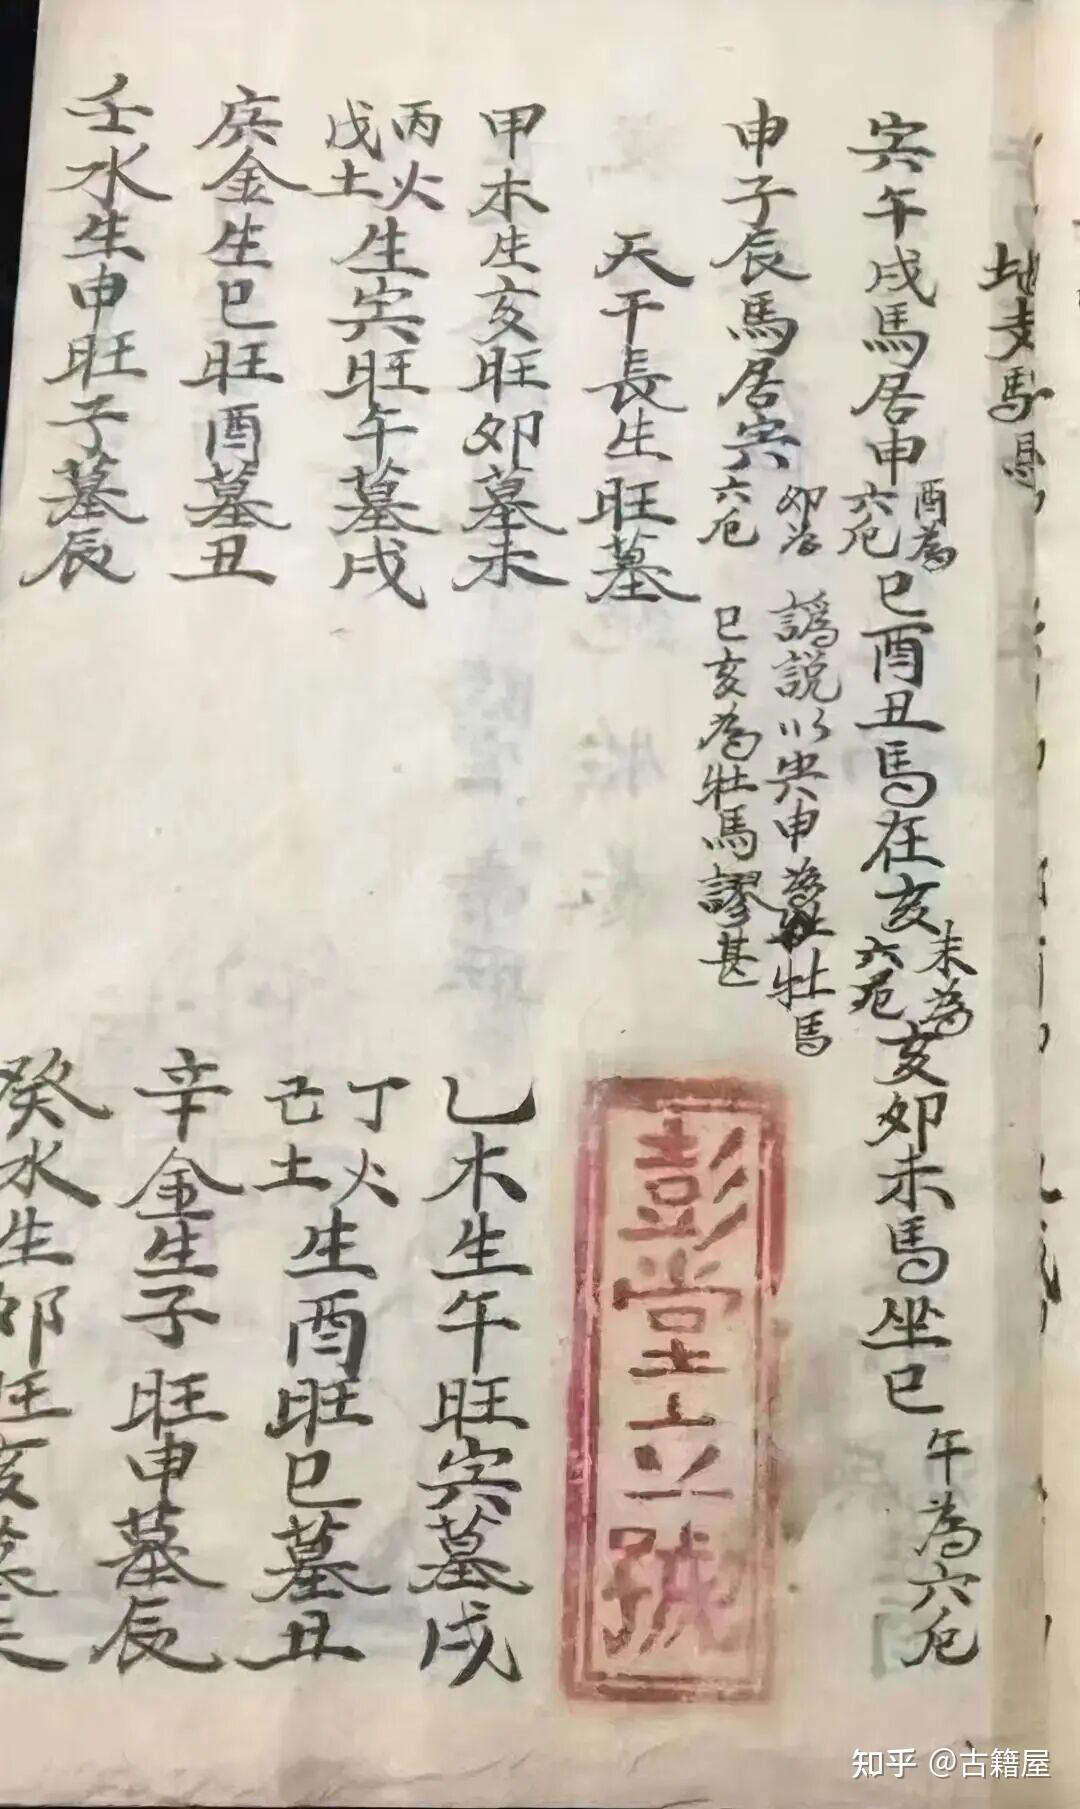 地支馬局
寅午戌馬居申酉為六厄巳酉丑馬在亥未為六厄亥卯未馬坐巳午為六厄
申子辰馬居寅卯為六厄 譌説以寅申為牡馬巳亥為牡馬謬甚
天干長生旺墓
甲木生亥旺卯墓未
乙木生午旺寅墓戌
丙火戊土生寅旺午墓戌
丁火己土生酉旺巳墓丑
庚金生巳旺酉墓丑
辛金生子旺申墓辰
壬水生申旺子墓辰
癸水生卯旺亥墓
彭堂立號
知乎 @古籍屋